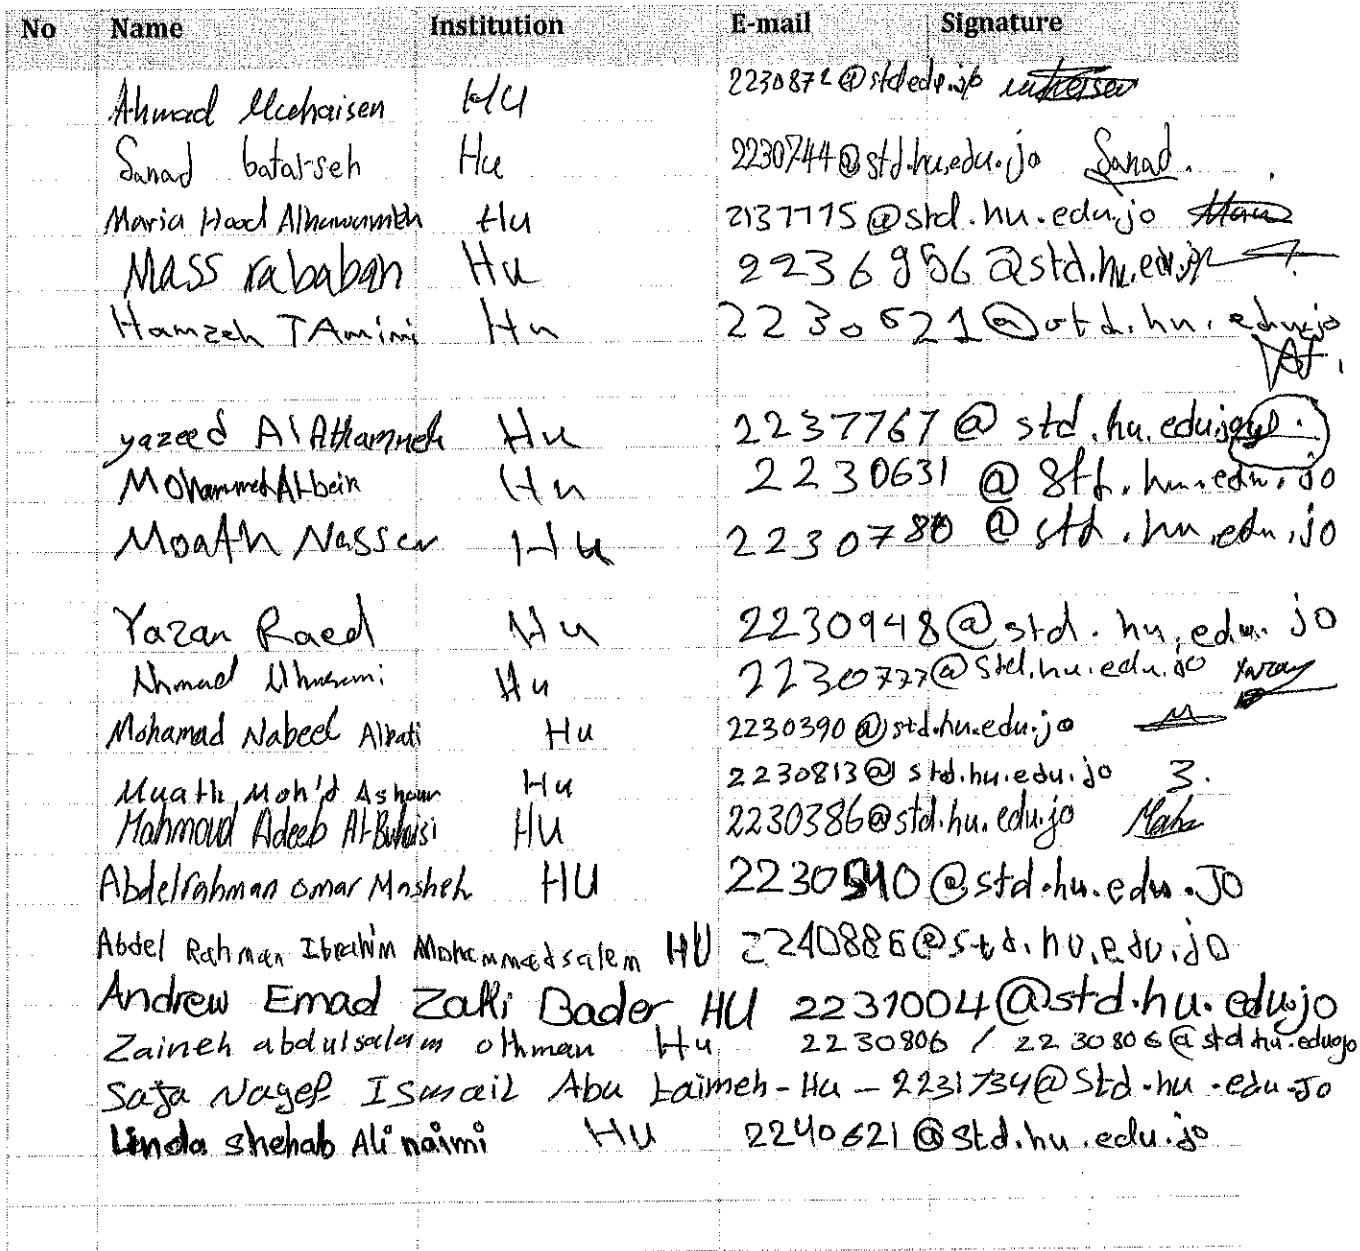 No Name Institution E-mail Signature
Ahmad HU
Sanad batarseh Hu 2230744@std.hu.edu.jo Sanad.
Maria Hu @std.hu.edu.jo
Mass rababah Hu 2236956@std.hu.edu.jo
Hamzeh TAmimi Hu @std.hu.edu.jo
yazeed AlAthamneh Hu 2237767@std.hu.edu.jo
Mohammed Hu 2230631@std.hu.edu.jo
Moath Nasser Hu 2230780@std.hu.edu.jo
Yazan Raed Hu 2230948@std.hu.edu.jo
Ahmad Hu 2230777@std.hu.edu.jo Yazan
Mohamad Nabeel Hu 2230390@std.hu.edu.jo
Muath Moh'd Ashour Hu 2230813@std.hu.edu.jo 3.
Mahmoud Adeeb Al-Buhaisi HU 2230386@std.hu.edu.jo
Abdelrahman omar Mosheh HU @std.hu.edu.JO
Abdel Rahman Ibrahim Mohammadsalem HU 2240886@std.hu.edu.jo
Andrew Emad Zakki Bader HU 2231004@std.hu.edu.jo
Zaineh abdulsalam othman Hu 2230806 / 2230806@std.hu.edu.jo
Saja Nayef Ismail Abu taimeh - Hu - 2231734@std.hu.edu.Jo
Linda shehab Ali naimi Hu 2240621@std.hu.edu.jo